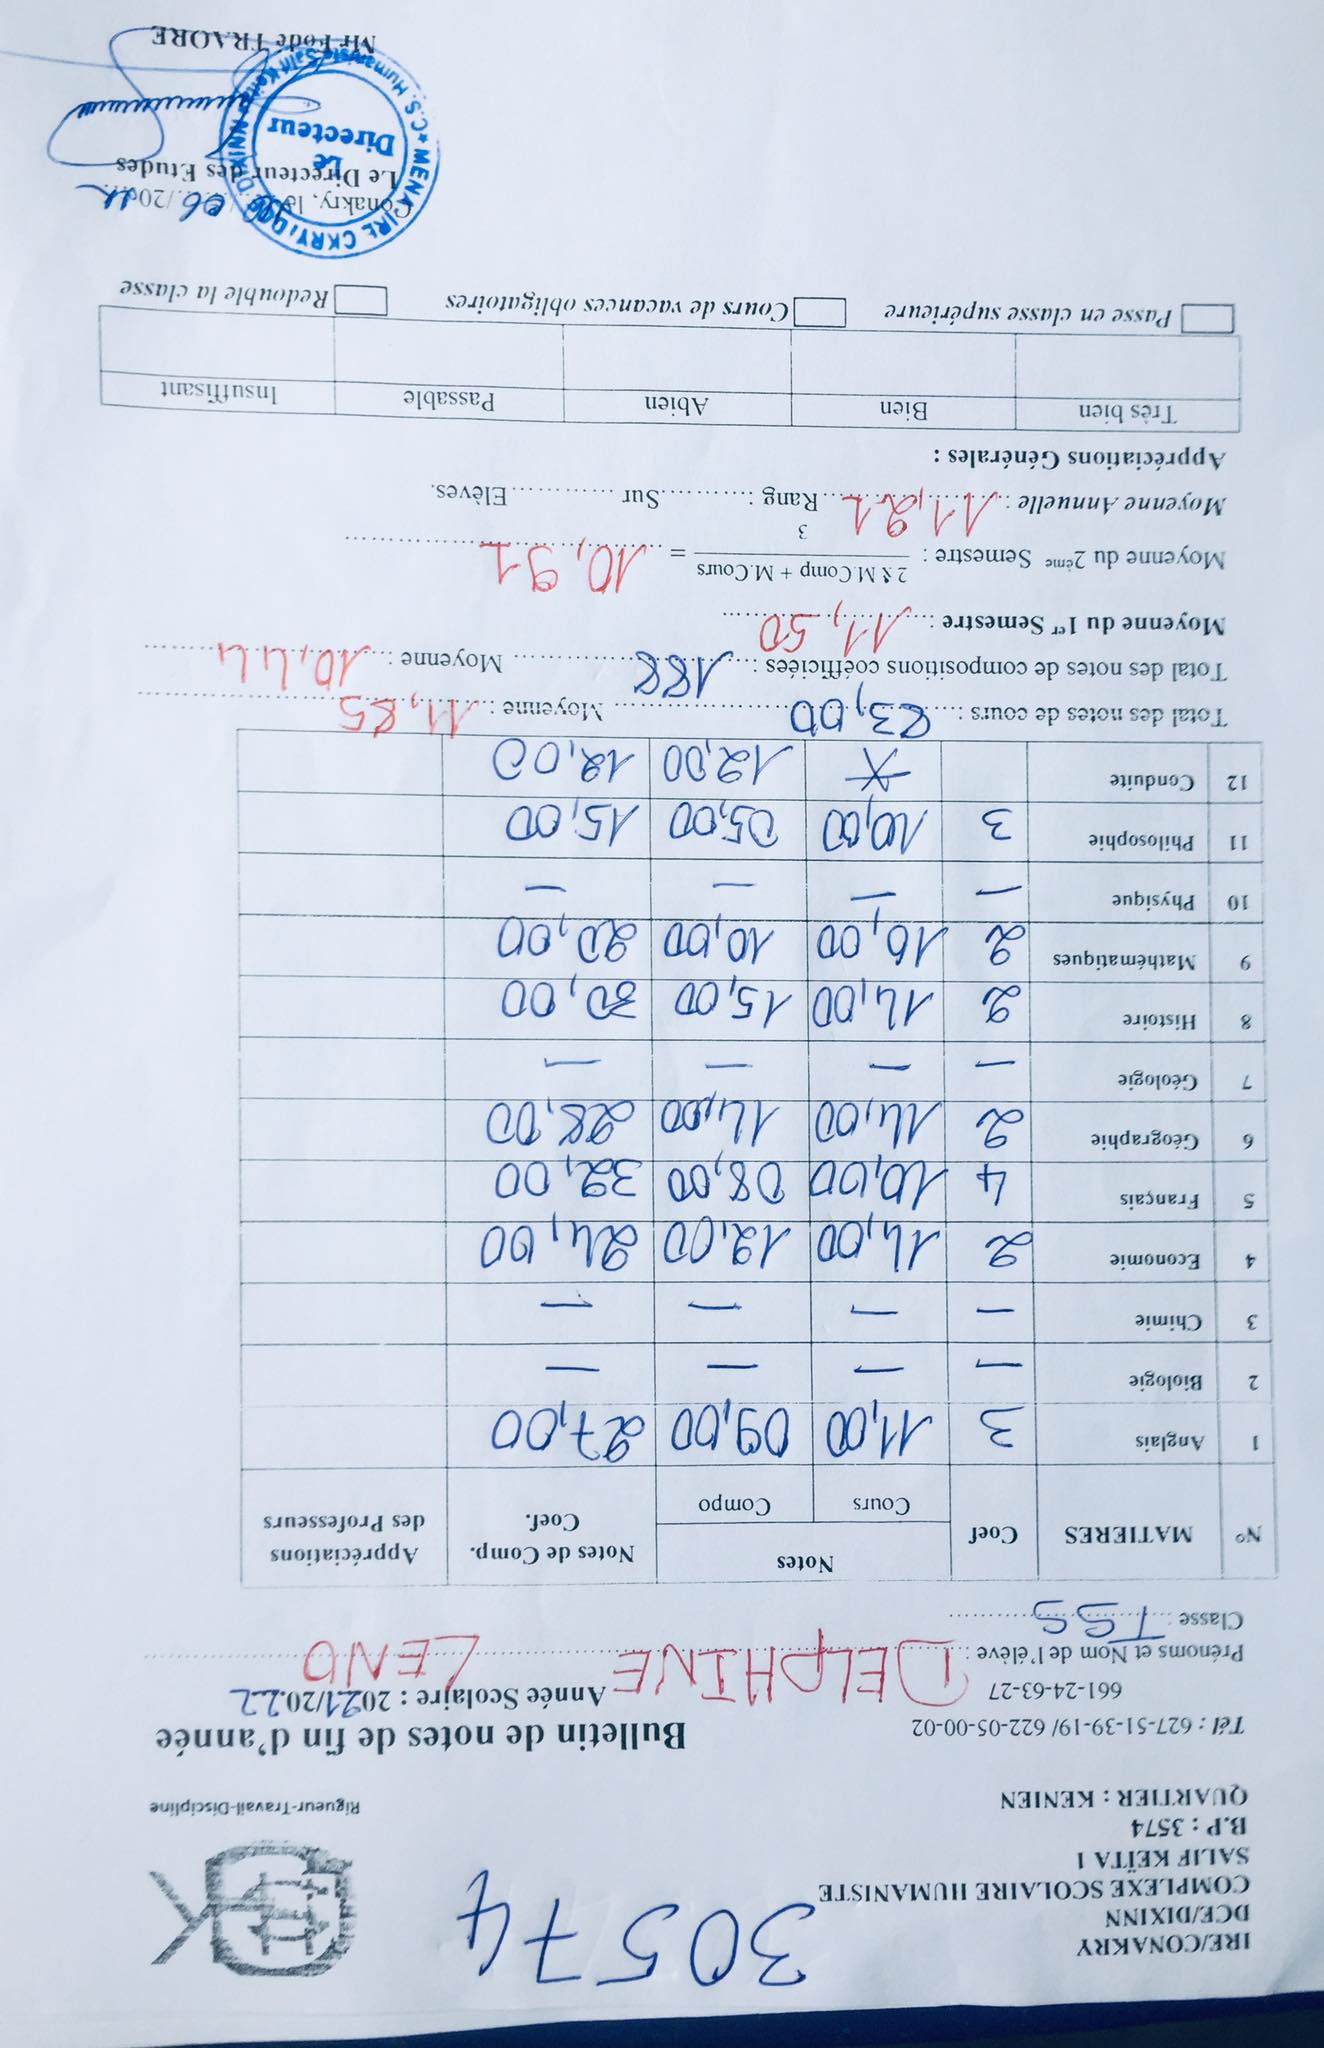 IRE/CONAKRY
DCE/DIXINN
COMPLEXE SCOLAIRE HUMANISTE
SALIF KEÏTA 1
B.P : 3574
QUARTIER : KENIEN
30574
Rigueur-Travail-Discipline
Tél : 627-51-39-19/ 622-05-00-02
661-24-63-27
Bulletin de notes de fin d'année
Année Scolaire : 2021/2022
Prénoms et Nom de l'élève : DELPHINE LENO
Classe : TSS
N° MATIERES Coef Notes Notes de Comp. Coef. Appréciations des Professeurs
Cours Compo
1 Anglais 3 11,00 09,00 27,00
2 Biologie — — — —
3 Chimie — — — —
4 Economie 2 14,00 12,00 24,00
5 Français 4 10,00 08,00 32,00
6 Géographie 2 14,00 14,00 28,00
7 Géologie — — — —
8 Histoire 2 14,00 15,00 30,00
9 Mathématiques 2 10,00 10,00 20,00
10 Physique — — — —
11 Philosophie 3 10,00 05,00 15,00
12 Conduite 12,00 12,00
Total des notes de cours : 83,00 Moyenne : 11,85
Total des notes de compositions coéfficiées : 188 Moyenne : 10,44
Moyenne du 1er Semestre : 11,50
Moyenne du 2ème Semestre : 2 x M.Comp + M.Cours / 3 = 10,91
Moyenne Annuelle : 11,21 Rang : Sur Elèves.
Appréciations Générales :
Très bien Bien Abien Passable Insuffisant
Passe en classe supérieure Cours de vacances obligatoires Redouble la classe
Conakry, le 06/20
Le Directeur des Etudes
Le Directeur
Mr Fodé TRAORE